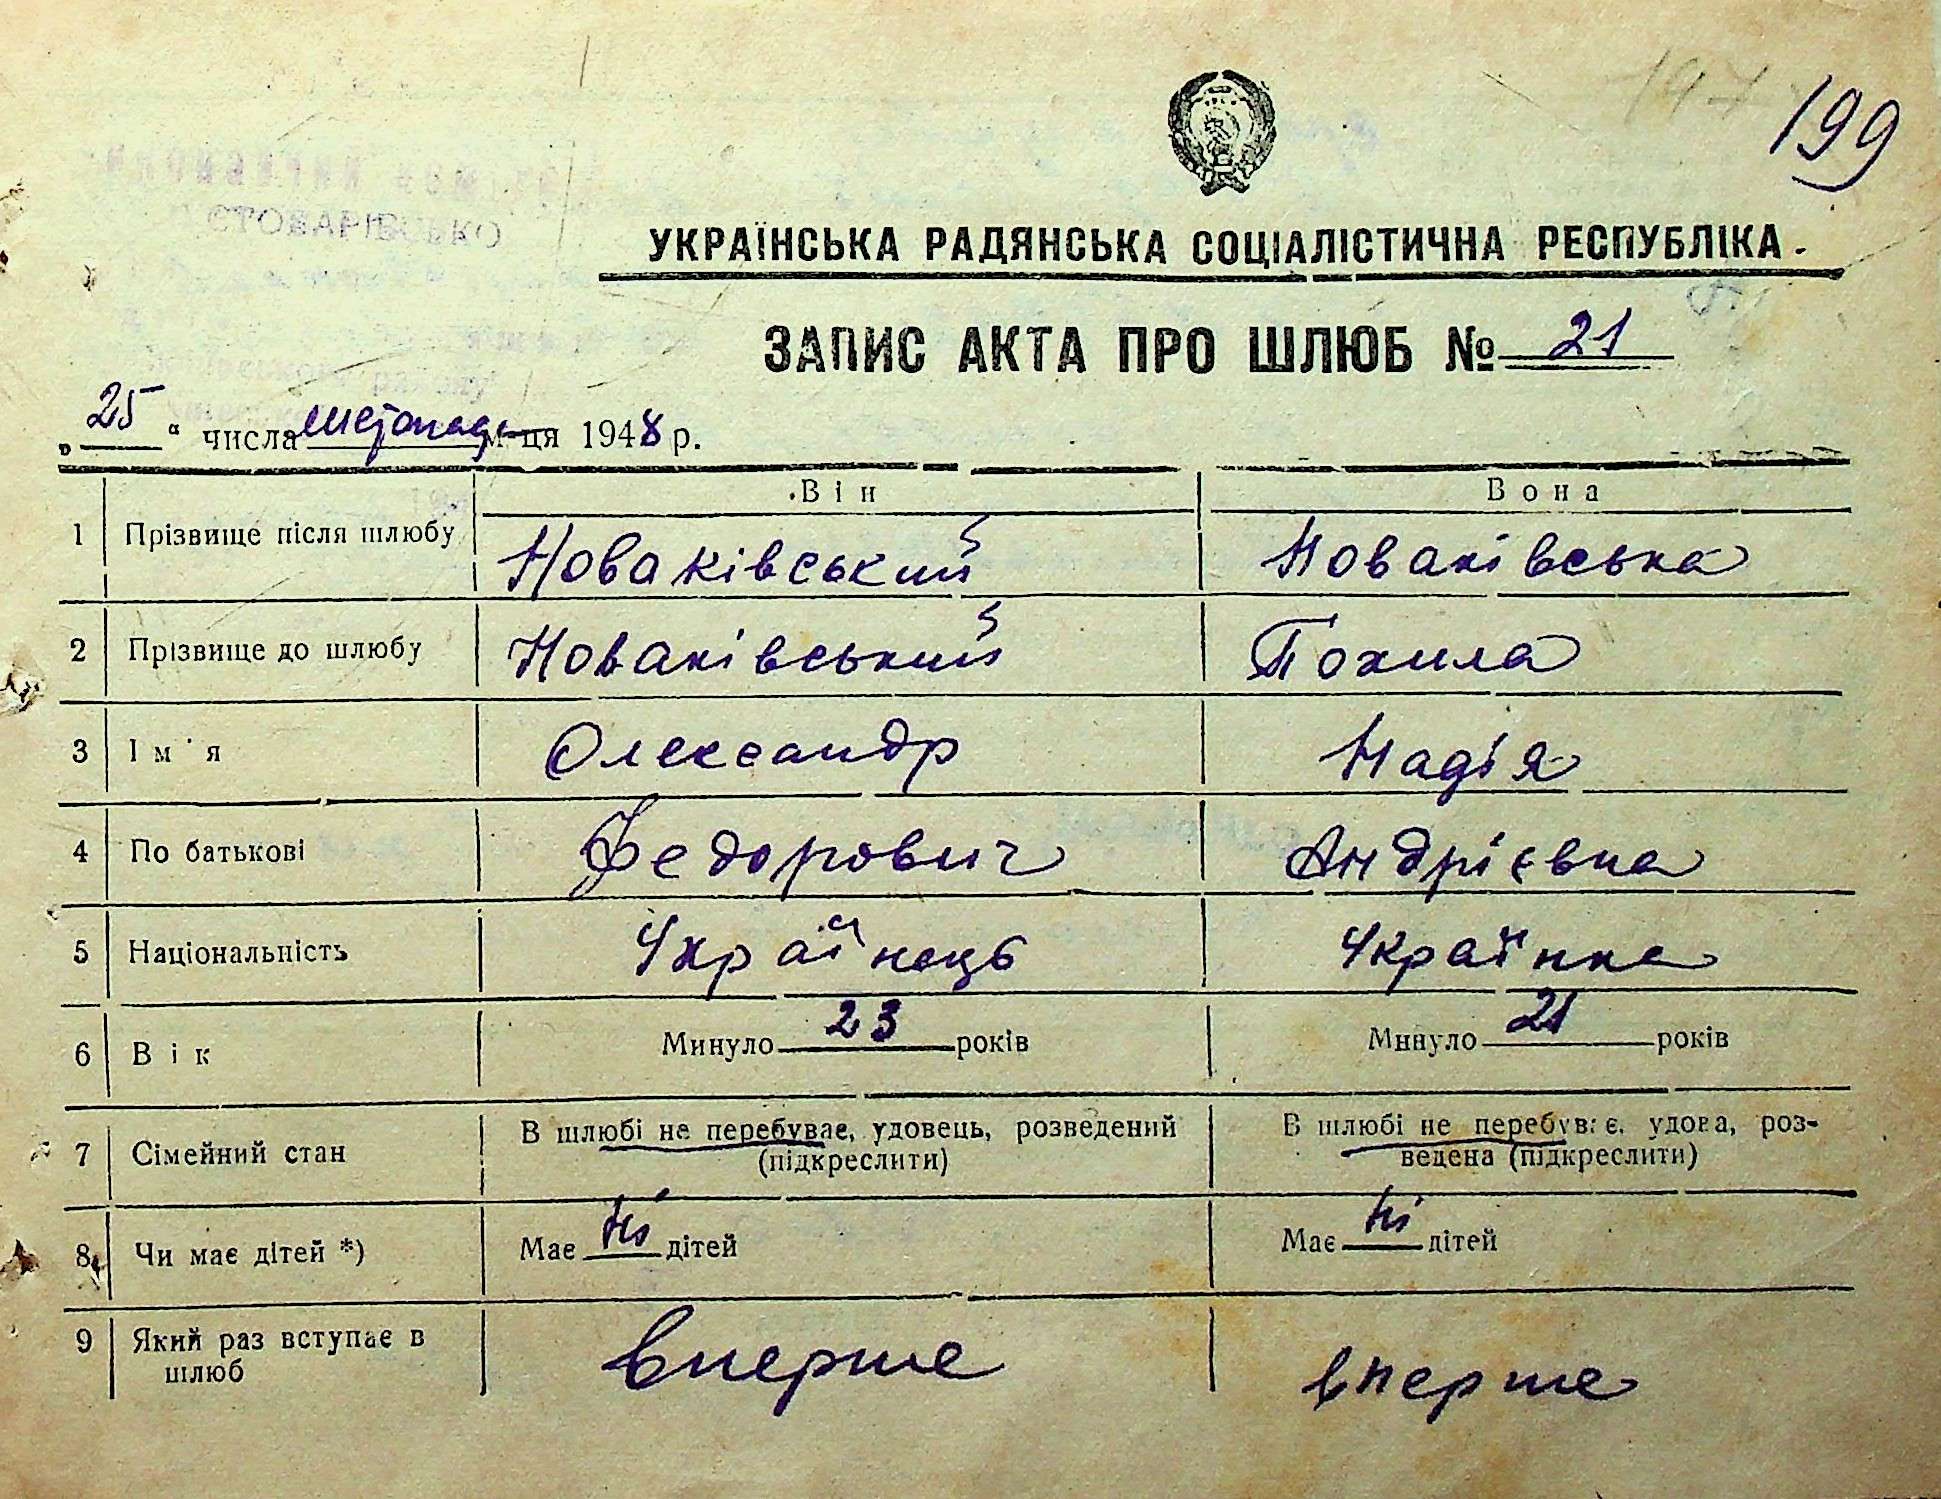 197
199
УКРАЇНСЬКА РАДЯНСЬКА СОЦІАЛІСТИЧНА РЕСПУБЛІКА
ЗАПИС АКТА ПРО ШЛЮБ № 21
„25“ числа листопада м-ця 1948 р.
Він Вона
1 Прізвище після шлюбу Новаківський Новаківська
2 Прізвище до шлюбу Новаківський Похила
3 Ім'я Олександр Надія
4 По батькові Федорович Андрієвна
5 Національність Українець Українка
6 Вік Минуло 23 років Минуло 21 років
7 Сімейний стан В шлюбі не перебуває, удовець, розведений (підкреслити) В шлюбі не перебуває, удова, роз-
ведена (підкреслити)
8 Чи має дітей *) Має ні дітей Має ні дітей
9 Який раз вступає в шлюб вперше вперше